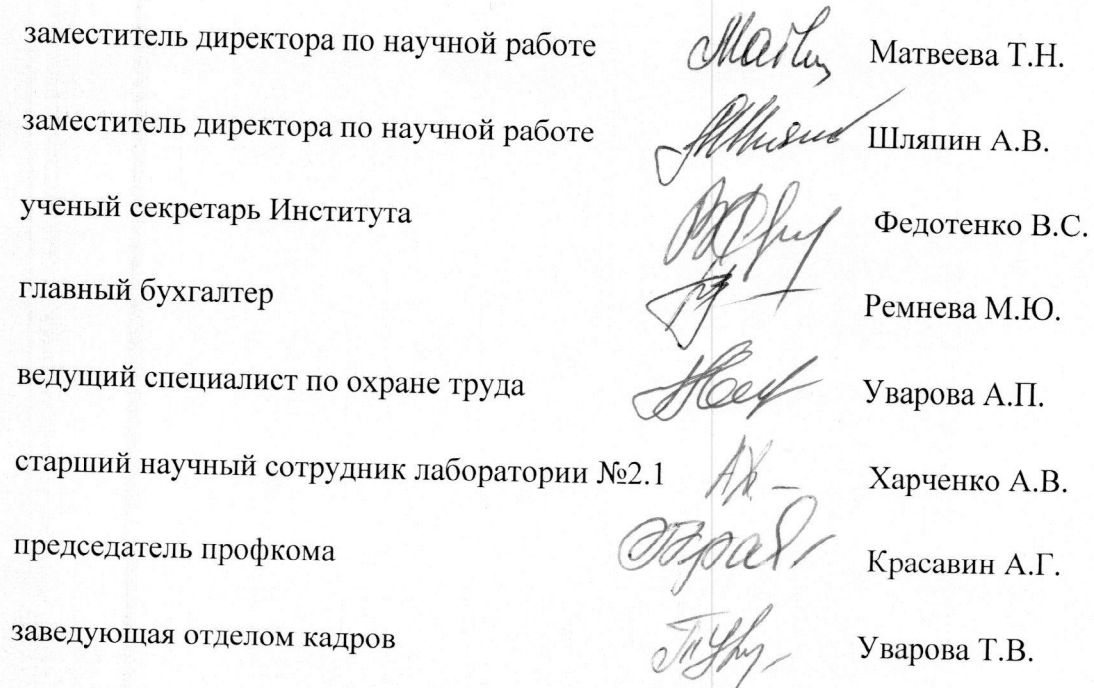 заместитель директора по научной работе Матвеева Т.Н.
заместитель директора по научной работе Шляпин А.В.
ученый секретарь Института Федотенко В.С.
главный бухгалтер Ремнева М.Ю.
ведущий специалист по охране труда Уварова А.П.
старший научный сотрудник лаборатории №2.1 Харченко А.В.
председатель профкома Красавин А.Г.
заведующая отделом кадров Уварова Т.В.